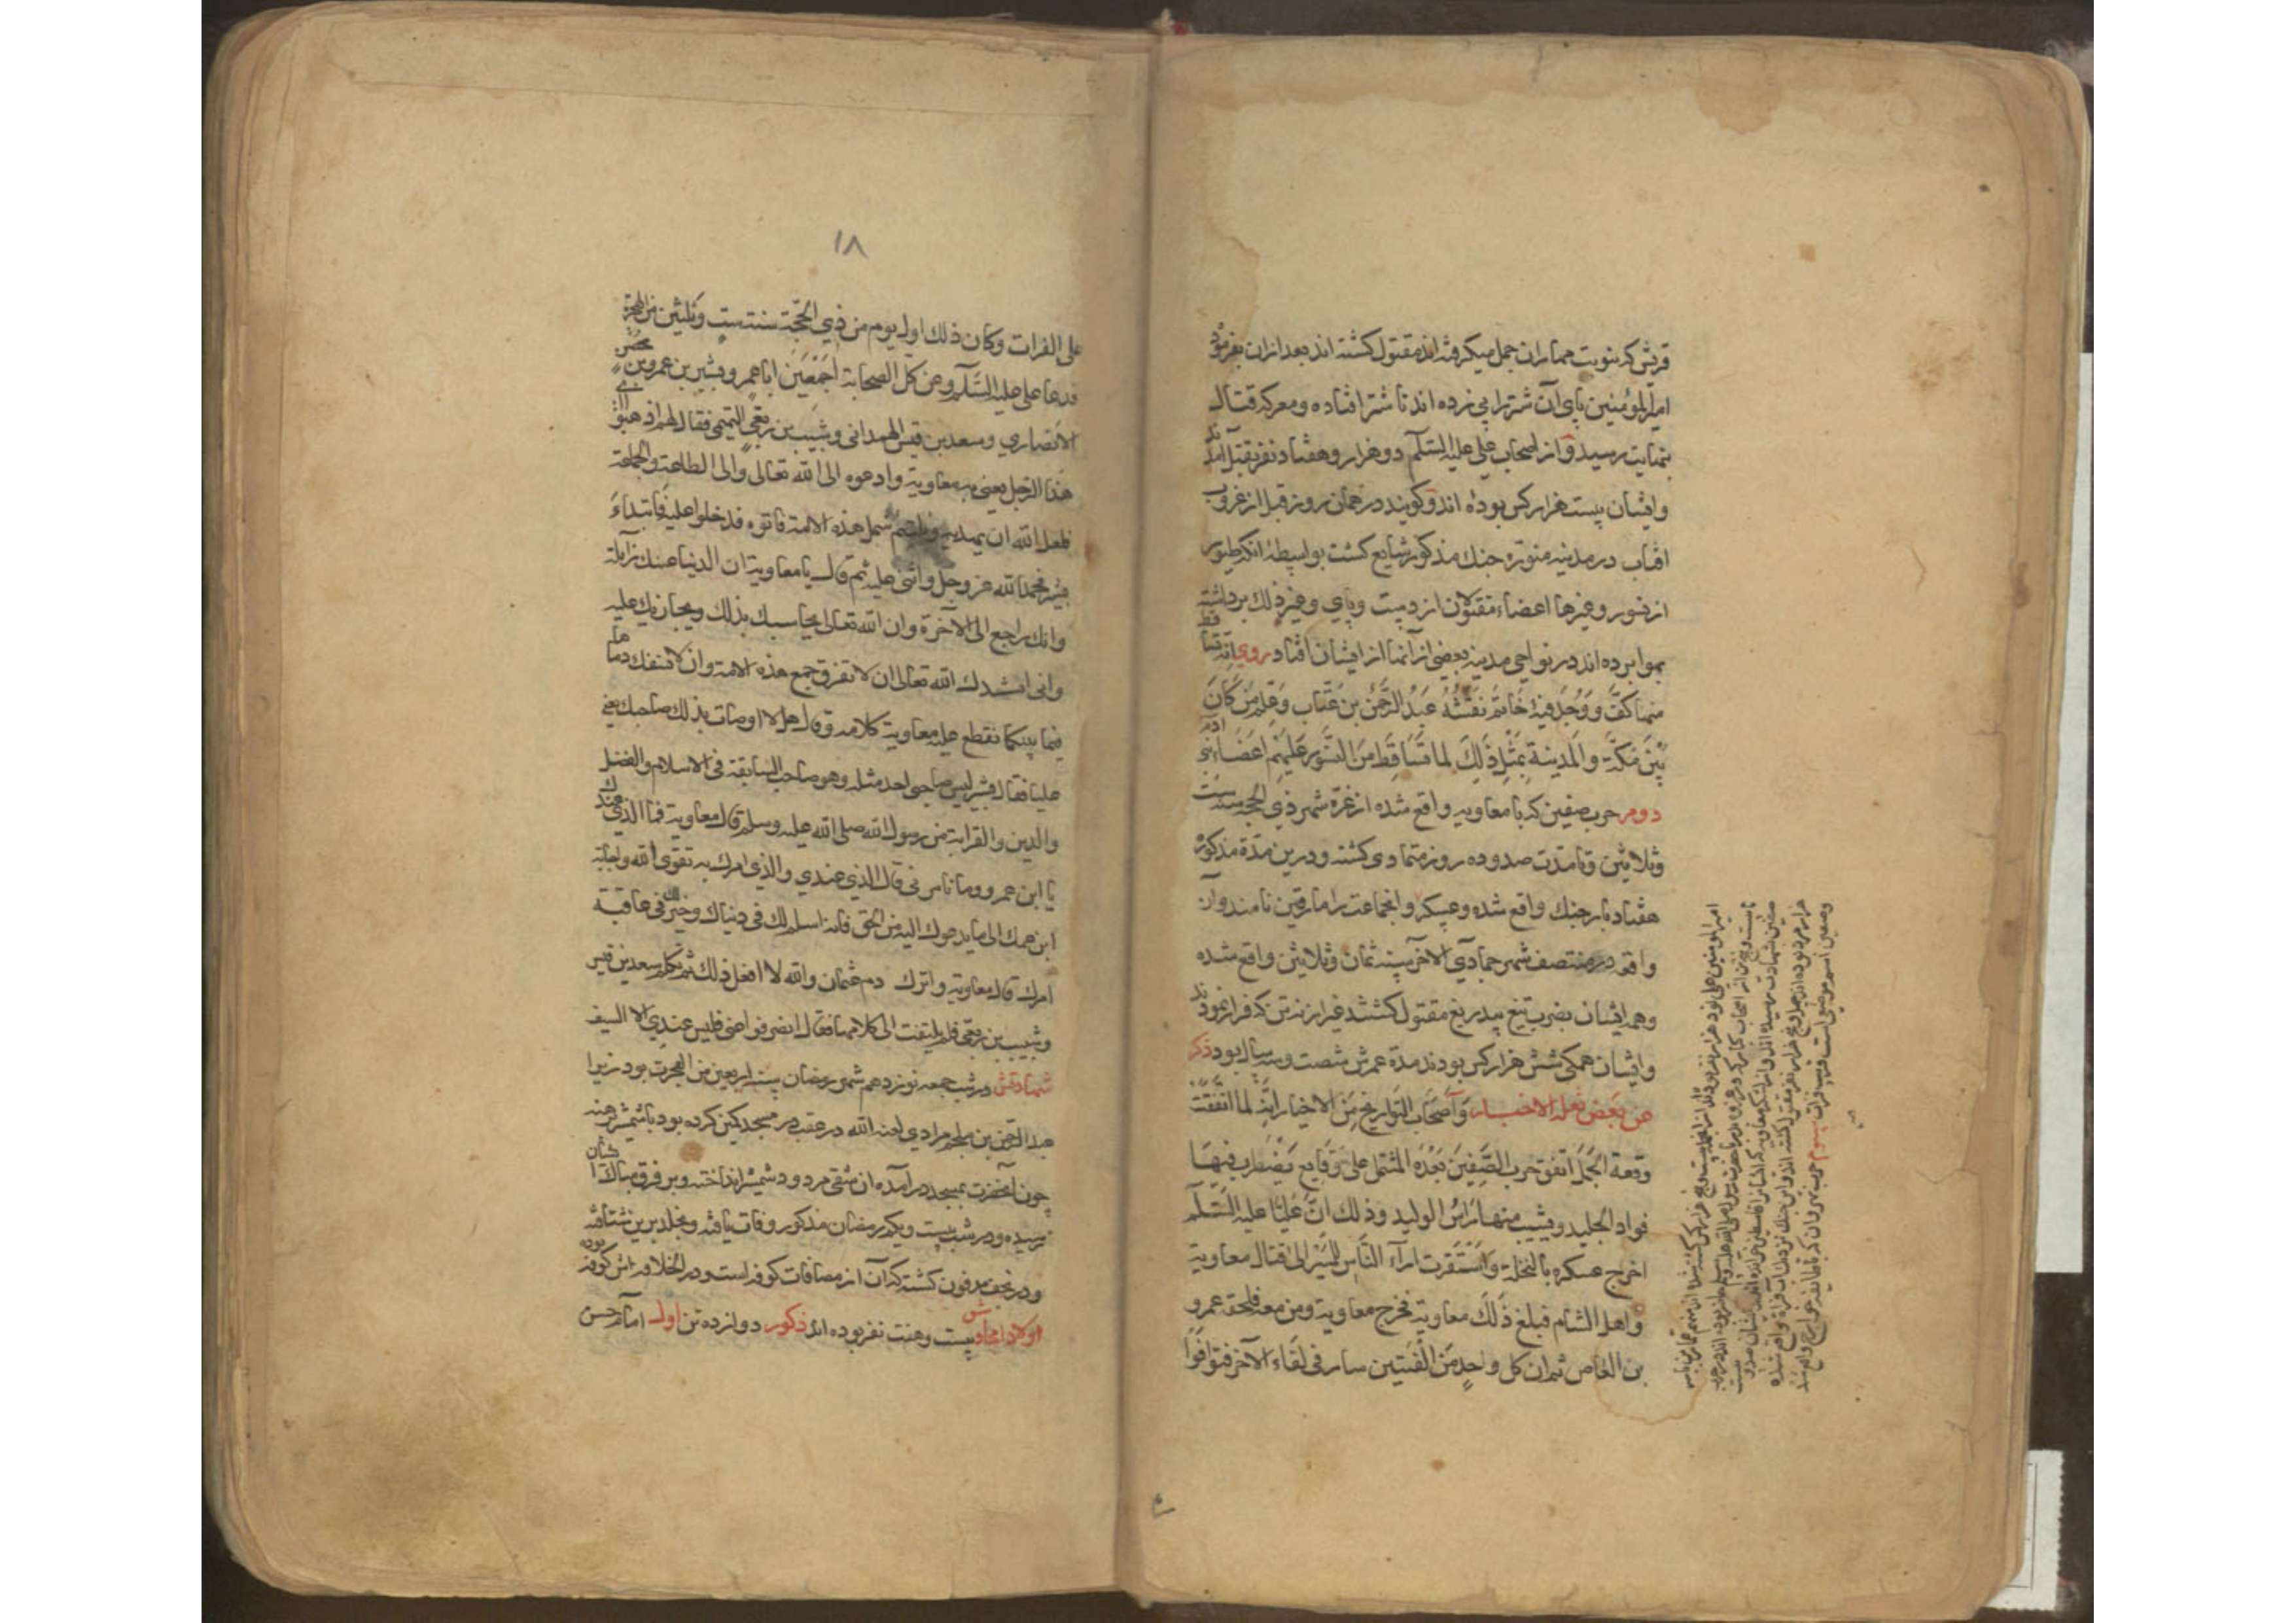 قریش که بنوبت مهار ان جمل میکرفته اند مقتول کشته اند بعد ازان بفرموده
امیر المؤمنین پای آن شتر را پی زده اند تا شتر افتاده و معرکه قتال
بنهایت رسید و از اصحاب علی علیه السلام دو هزار و هفتاد نفر بقتل آمدند
وایشان بیست هزار کس بوده اند و کویند در همان روز قبل از غروب
افتاب در مدینه منوره جنك مذکور شایع کشت بواسطه انکه طیور
از نسور و غیرها اعضاء مقتولان از دست و پای و غیر ذلك برداشته
بهوا برده اند در نواحی مدینه بعضی از آنها از ایشان افتاد روی انه
منها کف و وجد فیه خاتم نقشه عبد الرحمن بن عتاب وعلم من کان
بین مکة والمدینة بمثل ذلك لما تساقط من النسور علیهم اعضاء بنی ادم
دوم حرب صفین که با معاویه واقع شده از غرة شهر ذی الحجه سنه ست
وثلاثین و تا مدت صد و ده روز متمادی کشته و درین مدة مذکوره
هفتاد بار جنك واقع شده و عسکر و انجماعت را مارقین نامند و آن
واقعه در منتصف شهر جمادی الآخر سنه ثمان وثلاثین واقع شده
وهمه ایشان بضرب تیغ بیدریغ مقتول کشتند غیر از نه تن که فرار نمودند
وایشان همکی شش هزار کس بودند مدة عمرش شصت وسه سال بود ذکر
عن بعض نقلة الاخبار واصحاب التواریخ من الاخیار انه لما اتفقت
وقعة الجمل اتفق حرب الصفین بعده المشتمل علی وقایع یضطرب فیها
فواد الجلید ویشیب منها راس الولید وذلك ان علیا علیه السلام
اخرج عسکره بالنخلة واستقرت اراء الناس للمسیر الی قتال معاویة
واهل الشام فبلغ ذلك معاویة فخرج معاویة ومن معه فلحق عمرو
بن العاص ثم ان کل واحد من الفئتین سار فی لقاء الآخر فتوافوا
۱۸
علی الفرات وکان ذلك اول یوم من ذی الحجة سنة ست وثلثین من الهجرة
فدعا علی علیه السلام وعن کل الصحابة اجمعین ابا عمرو بشیر بن عمرو بن محصن
الانصاری وسعد بن قیس الهمدانی وشبیب بن ربعی التمیمی فقال لهم اذهبوا الی
هذا الرجل یعنی به معاویة وادعوه الی الله تعالی والی الطاعة والجماعة
لعل الله ان یهدیه ویلتئم شمل هذه الامة فاتوه فدخلوا علیه فابتداء
بشیر فحمد الله عز وجل واثنی علیه ثم قال یا معاویة ان الدنیا عنك زایلة
وانك راجع الی الآخرة وان الله تعالی یحاسبك بذلك ویجازیك علیه
وانی انشدك الله تعالی ان لا تفرق جمع هذه الامة وان لا تسفك دماءها
فیما بینکما فقطع علیه معاویة کلامه وقال هلا اوصیت بذلك صاحبك یعنی
علیا فقال بشیر لیس صاحبی احد مثله وهو صاحب السابقة فی الاسلام والفضل
والدین والقرابة من رسول الله صلی الله علیه وسلم قال معاویة فما الذی عندك
یا ابن عمرو وما تامرنی قال الذی عندی والذی امرك به تقوی الله واجابة
ابن عمك الی ما یدعوك الیه من الحق فانه اسلم لك فی دنیاك وخیر لك فی عاقبة
امرك قال معاویة واترك دم عثمان والله لا افعل ذلك ثم تکلم سعد بن قیس
وشبیب بن ربعی فلم یلتفت الی کلامهما فقال انصرفوا عنی فلیس عندی الا السیف
شهادتش در شب جمعه نوزدهم شهر رمضان سنه اربعین من الهجرت بود زیرا
عبد الرحمن بن ملجم مرادی لعنه الله در عقب در مسجد کمین کرده بود با شمشیر برهنه
چون آنحضرت بمسجد درآمده ان شقی مردود شمشیر انداخته و بر فرق مبارك آنشان
رسیده و در شب بیست و یکم رمضان مذکور وفات یافته و بخلد برین شتافته
و در نجف مدفون کشته که آن از مضافات کوفه است و دار الخلافه اش کوفه بوده
اولاد امجادش بیست و هفت نفر بوده اند ذکور دوازده تن اول امام حسن